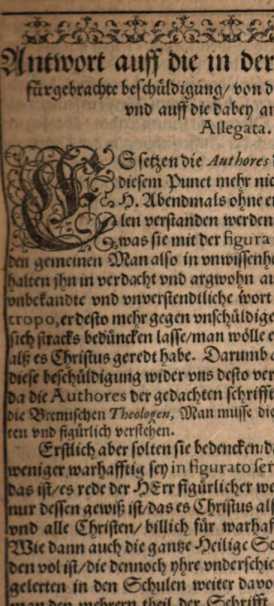 Antwort auff die in der
fürgebrachte beschüldigung/ von d
vnd auff die dabey an
Allegata.
ES setzen die Authores
diesem Punct mehr nic
H. Abendmals ohne er
len verstanden werden
was sie mit der figura
den gemeinen Man also in vnwissenhe
halten jhn in verdacht vnd argwohn au
vnbekandte vnd vnverstendtliche wort
tropo, er desto mehr gegen vnschüldige
sich stracks bedüncken lasse/ man wölle e
alß es Christus geredt habe. Darumb a
diese beschüldigung wider vns desto ver
da die Authores der gedachten schrifft
die Bremischen Theologen, Man musse die
ten vnd figürlich verstehen.
Erstlich aber solten sie bedencken/ da
weniger warhafftig sey in figurato ser
das ist/ es rede der HErr figürlicher we
nur dessen gewiß ist/ das es Christus als
vnd alle Christen/ billich für warhaf
Wie dann auch die gantze Heilige Sc
den vol ist/ die dennoch yhre vnderschie
gelerten in den Schulen weiter davo
man den mehrern theil der Schrifft